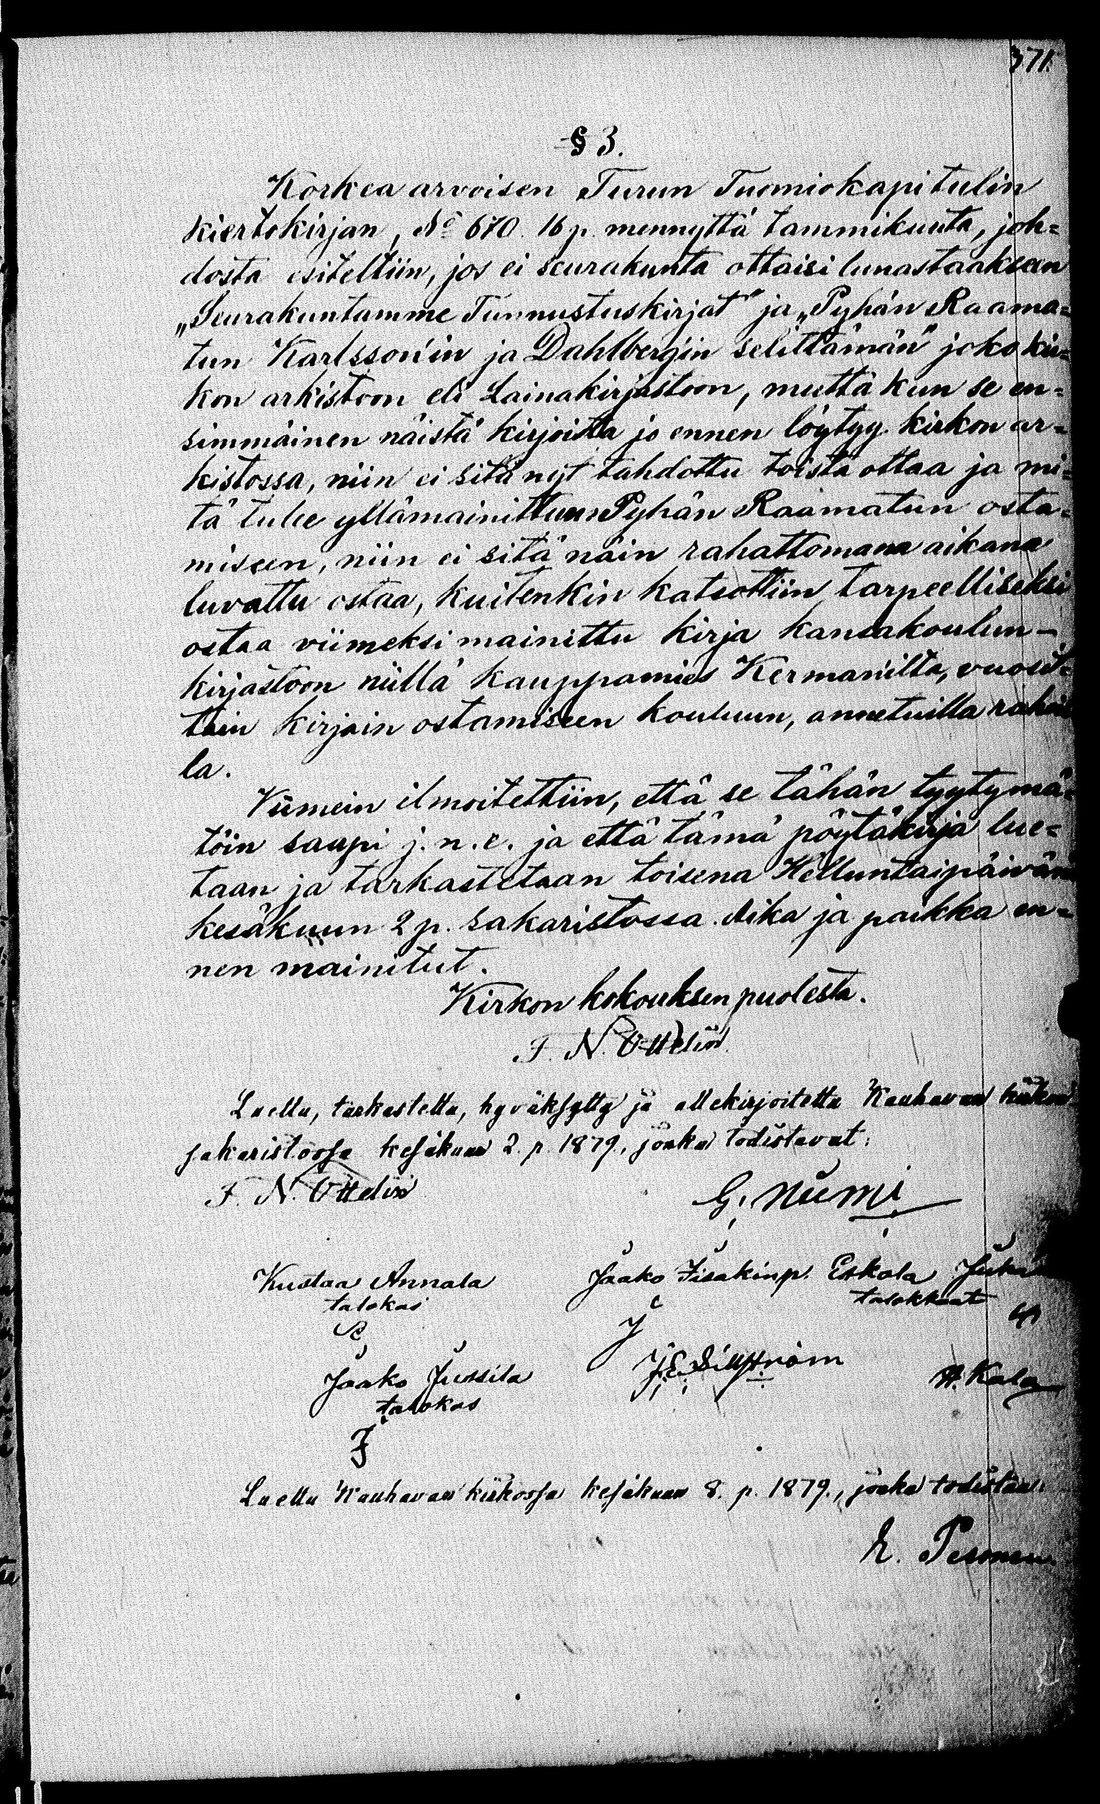 371.
§ 3.
Korkea arvoisen Turun Tuomiokapitulin
kiertokirjan, No 670. 16 p. mennyttä tammikuuta, joh=
dosta esiteltiin, jos ei seurakunta ottaisi lunastaakseen
„Seurakuntamme Tunnustuskirjat" ja „Pyhän Raama=
tun Karlsson'in ja Dahlberg'in selittämän" joko kir=
kon arkistoon eli Lainakirjastoon, mutta kun se en=
simmäinen näistä kirjoista jo ennen löytyy kirkon ar=
kistossa, niin ei sitä nyt tahdottu toista ottaa ja mi=
tä tulee yllämainittuun Pyhän Raamatun osta=
miseen, niin ei sitä näin rahattomana aikana
luvattu ostaa, kuitenkin katsottiin tarpeelliseksi
ostaa viimeksi mainittu kirja kansakoulun-
kirjastoon niillä kauppamies Kerman'ilta, vuosit=
tain kirjain ostamiseen kouluun, annetuilla rahoil
la.
Viimein ilmoitettiin, että se tähän tyytymä=
töin saapi j. n. e. ja että tämä pöytäkirja lue=
taan ja tarkastetaan toisena Helluntaipäivänä
kesäkuun 2 p. sakaristossa. Aika ja paikka en=
nen mainitut.
Kirkon kokouksen puolesta.
F. N. Ottelin
Luettu, tarkastettu, hyväksytty ja allekirjoitettu Kauhavan kirkon
sakaristossa kesäkuun 2. p. 1879, jonka todistavat:
F. N. Ottelin
G. Niemi
Kustaa Annala
talokas
Jaako Iisakinp. Eskola Juha
talokkaat
Jaako Jussila
talokas
J. E. Sillström
H. Kala
Luettu Kauhavan kirkossa kesäkuun 8. p. 1879., jonka todistaa:
E. Pesonen